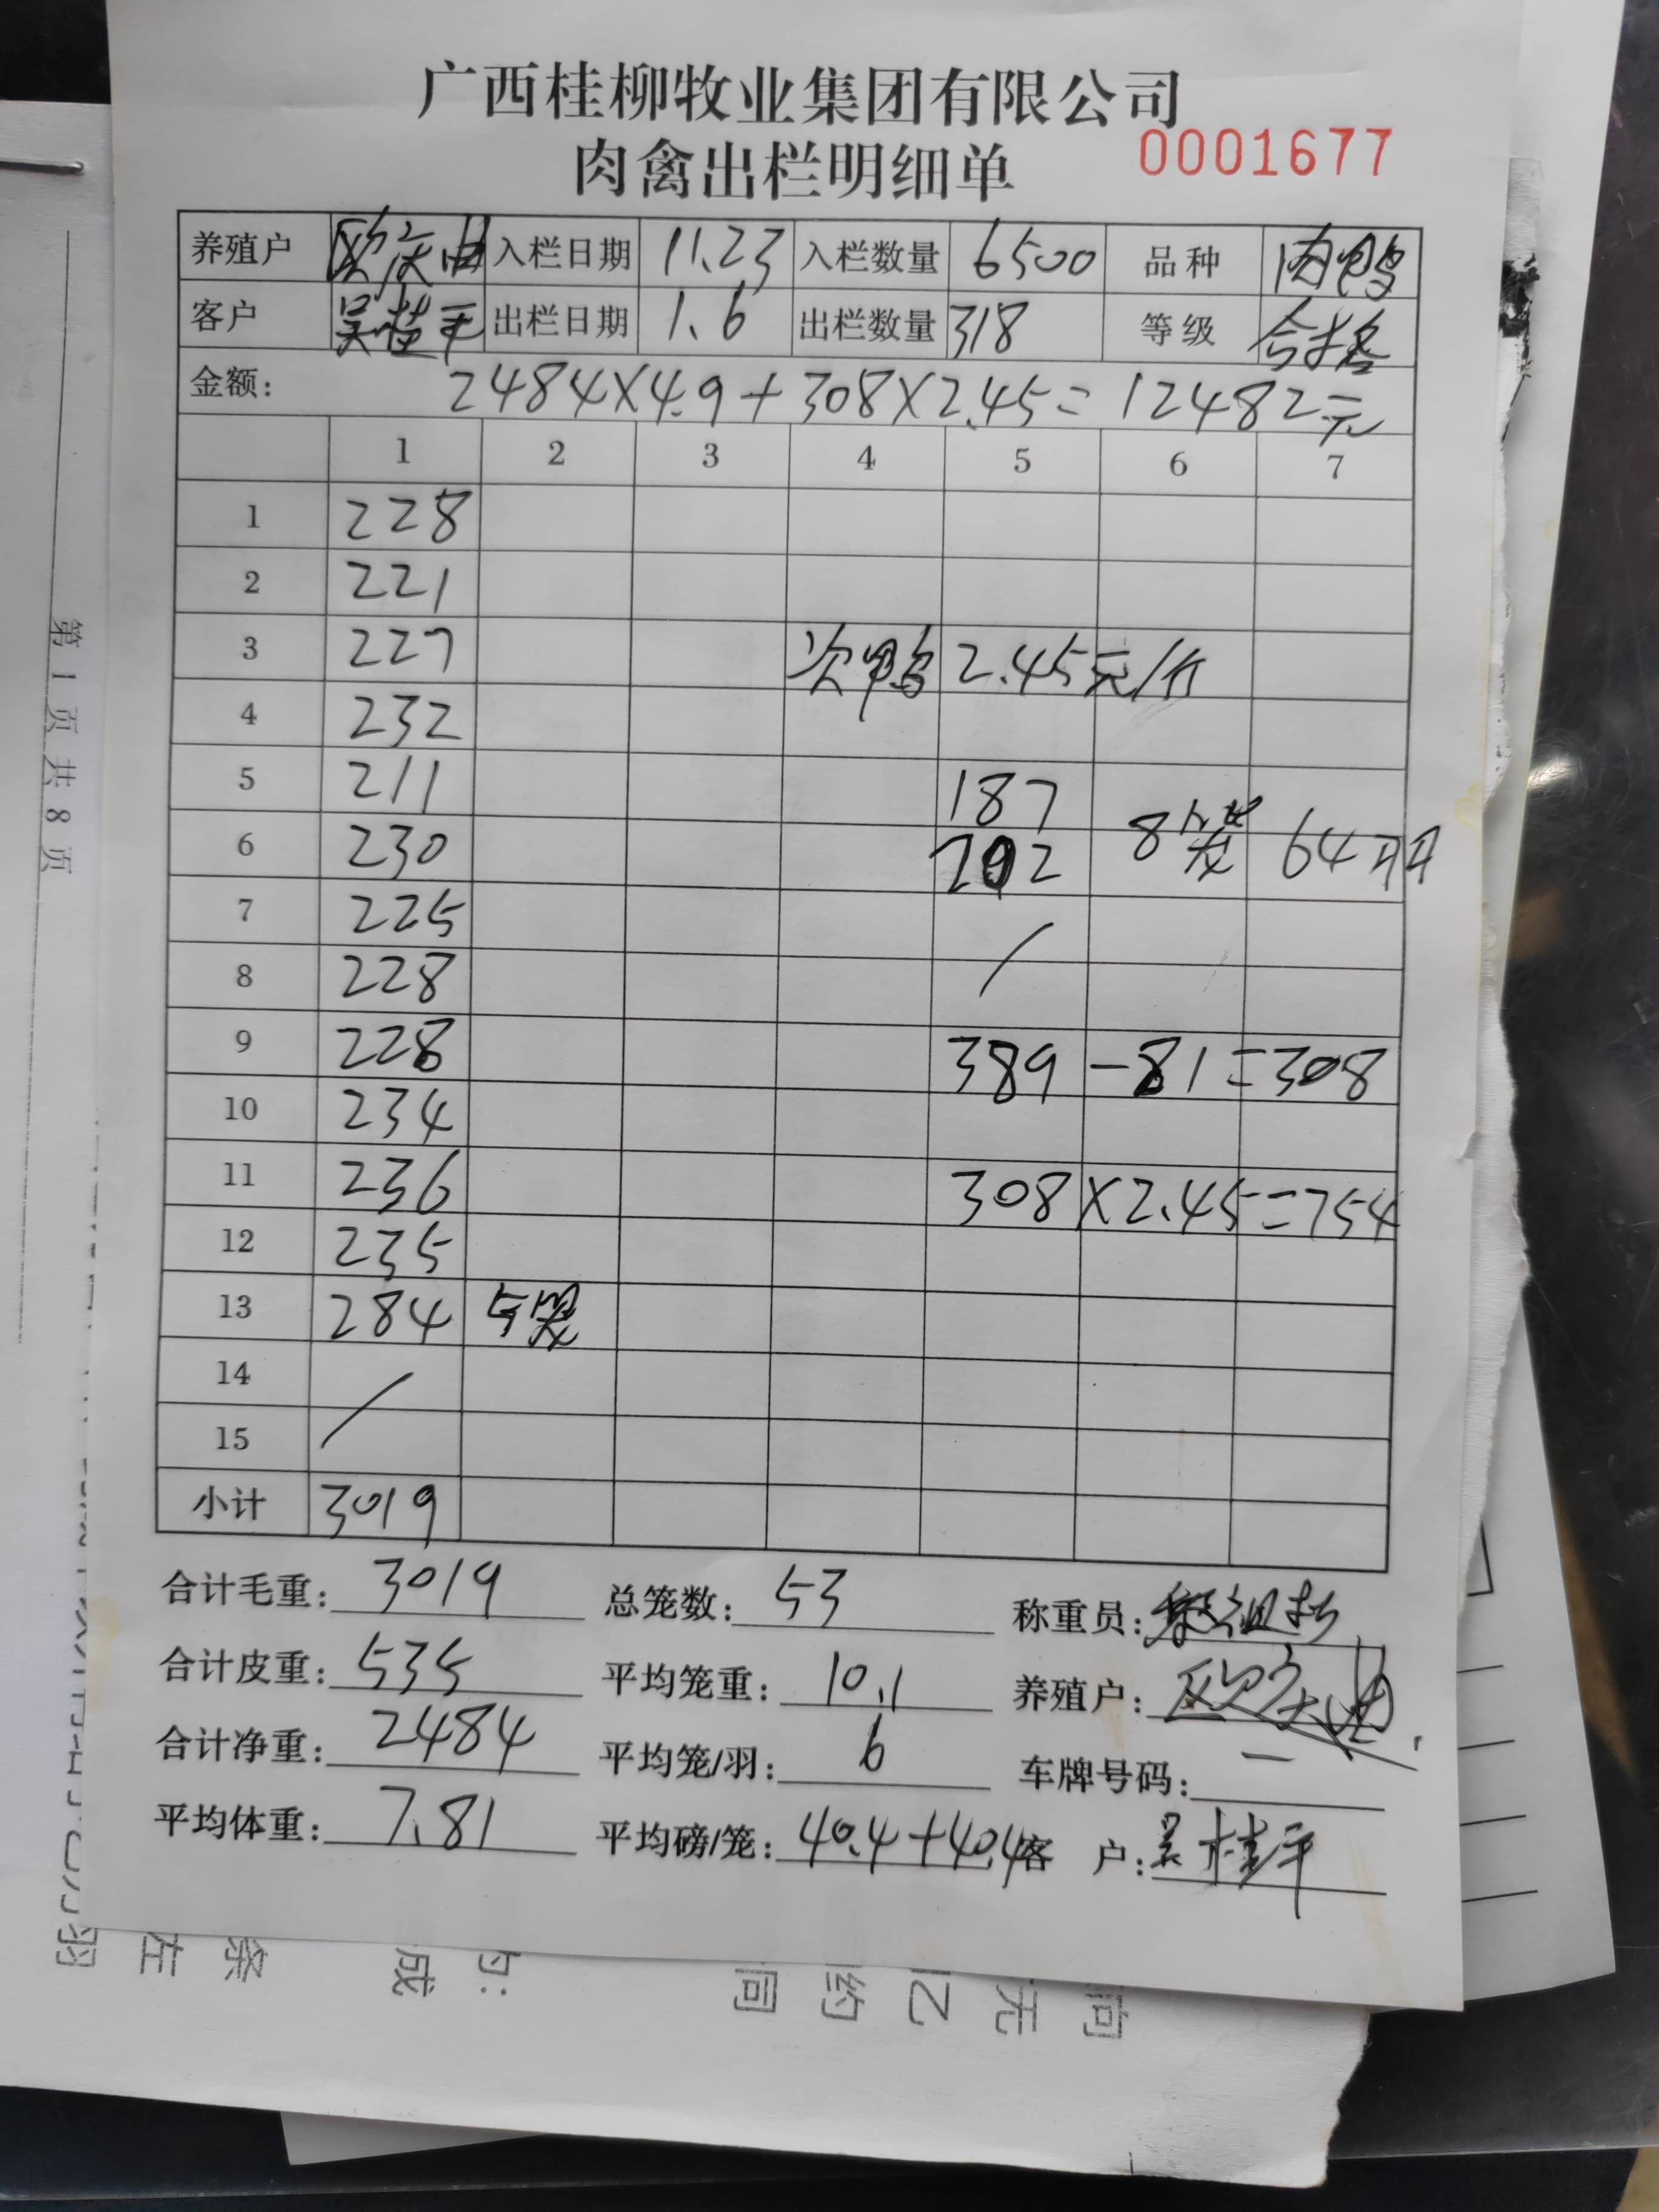 广西桂柳牧业集团有限公司
肉禽出栏明细单 0001677
养殖户 入栏日期 11.23 入栏数量 6500 品种 肉鸭
客户 吴桂平 出栏日期 1.6 出栏数量 318 等级 合格
金额: 2484×4.9+308×2.45=12482元
1 2 3 4 5 6 7
1 228
2 221
3 227 次鸭 2.45元/斤
4 232
5 211 187
6 230 202 8笼 64羽
7 225 /
8 228
9 228 389 -81=308
10 234
11 236 308×2.45=754
12 235
13 284 5笼
14 /
15
小计 3019
合计毛重: 3019 总笼数: 53 称重员:
合计皮重: 535 平均笼重: 10.1 养殖户:
合计净重: 2484 平均笼/羽: 6 车牌号码: —
平均体重: 7.81 平均磅/笼: 40.4+40.4 客户: 吴桂平
第1页共8页